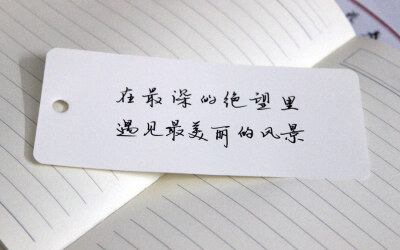 在最深的绝望里
遇见最美丽的风景